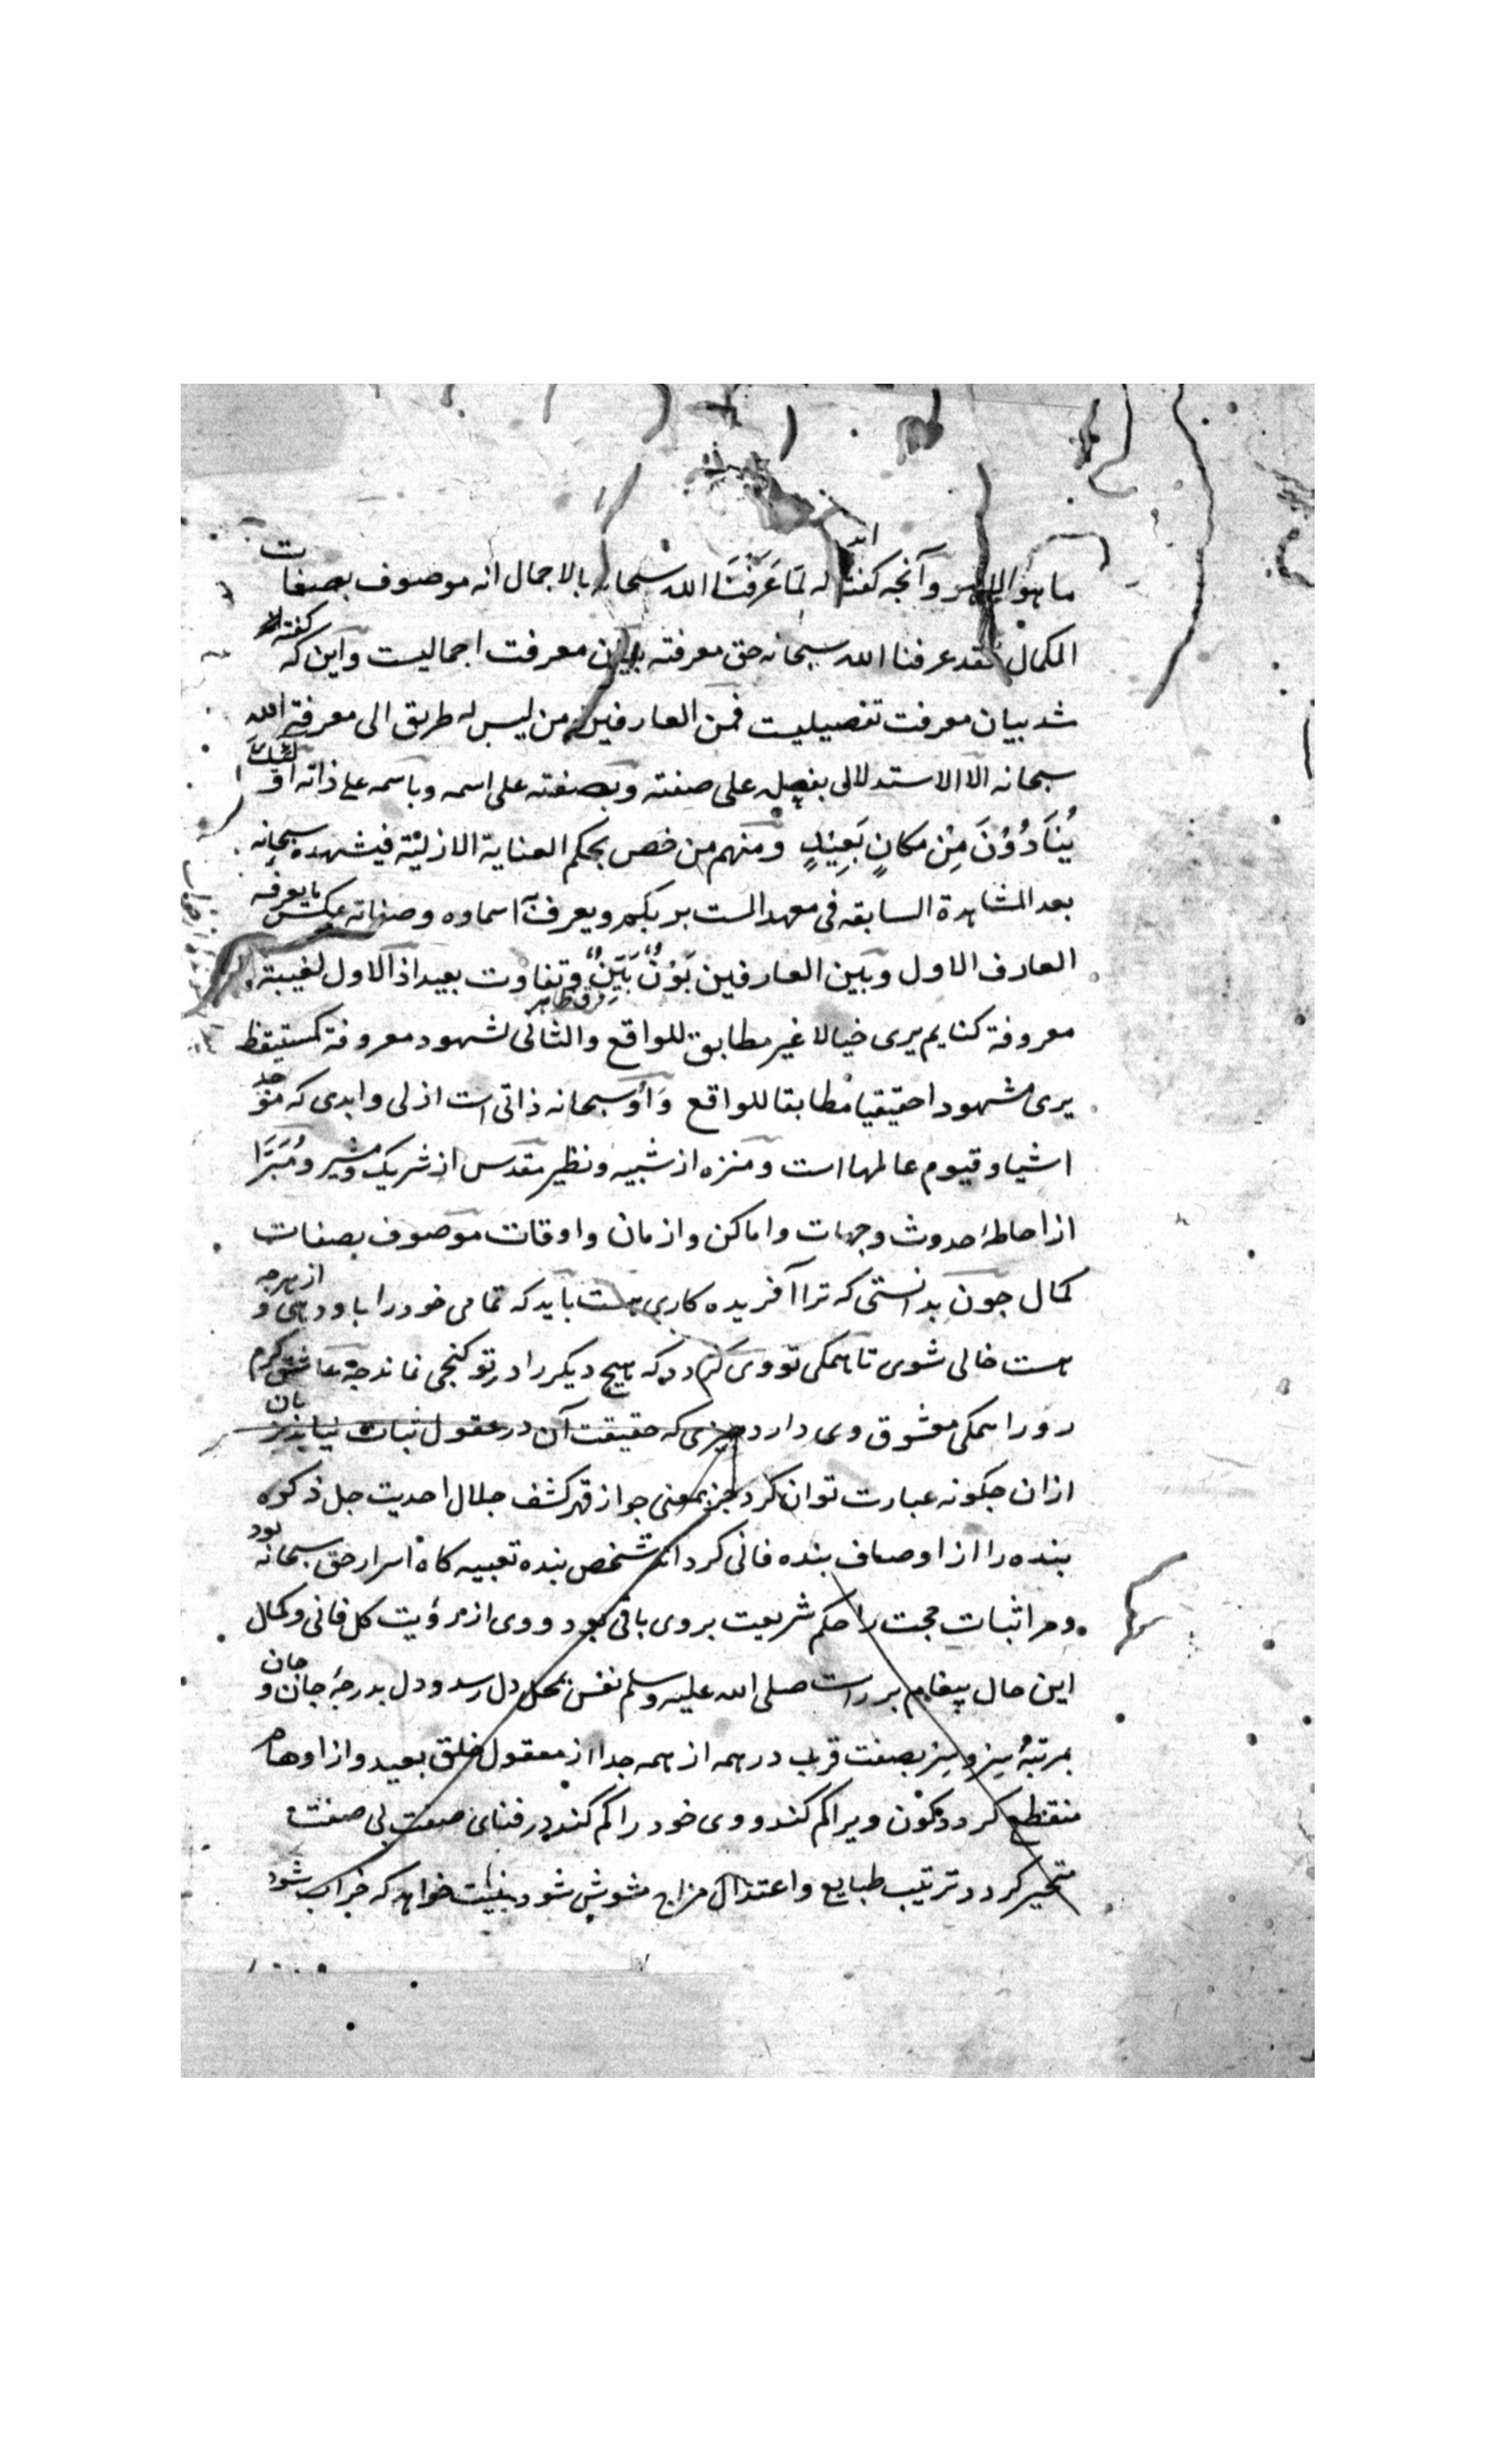 ما هو الا هو وآنجه كفته اند له لما عرفنا الله سبحانه بالاجمال انه موصوف بصفات
الكمال فقد عرفنا الله سبحانه حق معرفته بيان معرفت اجماليست واين كه كفته
شد بيان معرفت تفصيليت فمن العارفين من ليس له طريق الى معرفة الله
سبحانه الا الاستدلالى بفعله على صفته وبصفته على اسمه وباسمه على ذاته اولئك
يُنَادَوْنَ مِنْ مكانٍ بَعِيْدٍ ومنهم من خص بحكم العناية الازليّة فيشهده سبحانه
بعد المشاهدة السابقه فى معهد الست بربكم ويعرف اسماوه وصفاته عكس ما يعرفه
العارف الاول وبين العارفين بَوْنٌ بَيِّنٌ وتفاوت بعيد اذ الاول لغيبة
فرق ظاهر
معروفة كنايم يرى خيالا غير مطابق للواقع والثانى لشهود معروفة كمستيقظ
يرى مشهودا حقيقيا مطابقا للواقع وَاُو سبحانه ذاتى است ازلى وابدى كه موجد
اشيا وقيوم عالمها است ومنزه از شبيه ونظير مقدس از شريك ومشير ومُبَرَّا
از احاطهٔ حدوث وجهات واماكن وازمان واوقات موصوف بصفات
كمال جون بدانستى كه ترا آفريده كارى هست بايد كه تمامى خود را باو دهى و از هرجه
هست خالى شوى تا همكى تو وى كردد كه هيج ديكر را در تو كنجى نماند جه عاشق كرم
رو را همكى معشوق وى دارد جيزى كه حقيقت آن در عقول ثبات نيابد زبان
ازان جكونه عبارت توان كرد جز بمعنى جواز قهر كشف جلال احديت جل ذكره
بنده را از اوصاف بنده فانى كرداند شخص بنده تعبيه كاه اسرار حق سبحانه بود
ومر اثبات حجت را حكم شريعت بر وى باقى بود و وى از رؤيت كل فانى وكمال
اين حال پيغامبر راست صلى الله عليه وسلم نفس بمحل دل رسد ودل بدرجهٔ جان و جان
بمرتبهٔ سِرّ وسِرّ بصفت قرب در همه از همه جدا از معقول خلق بعيد واز اوهام
منقطع كردد كون ويرا كم كند و وى خود را كم كند در فناى صفت بى صفت
متحير كردد ترتيب طبايع واعتدال مزاج مشوش شود بنيت خواهد كه خراب شود